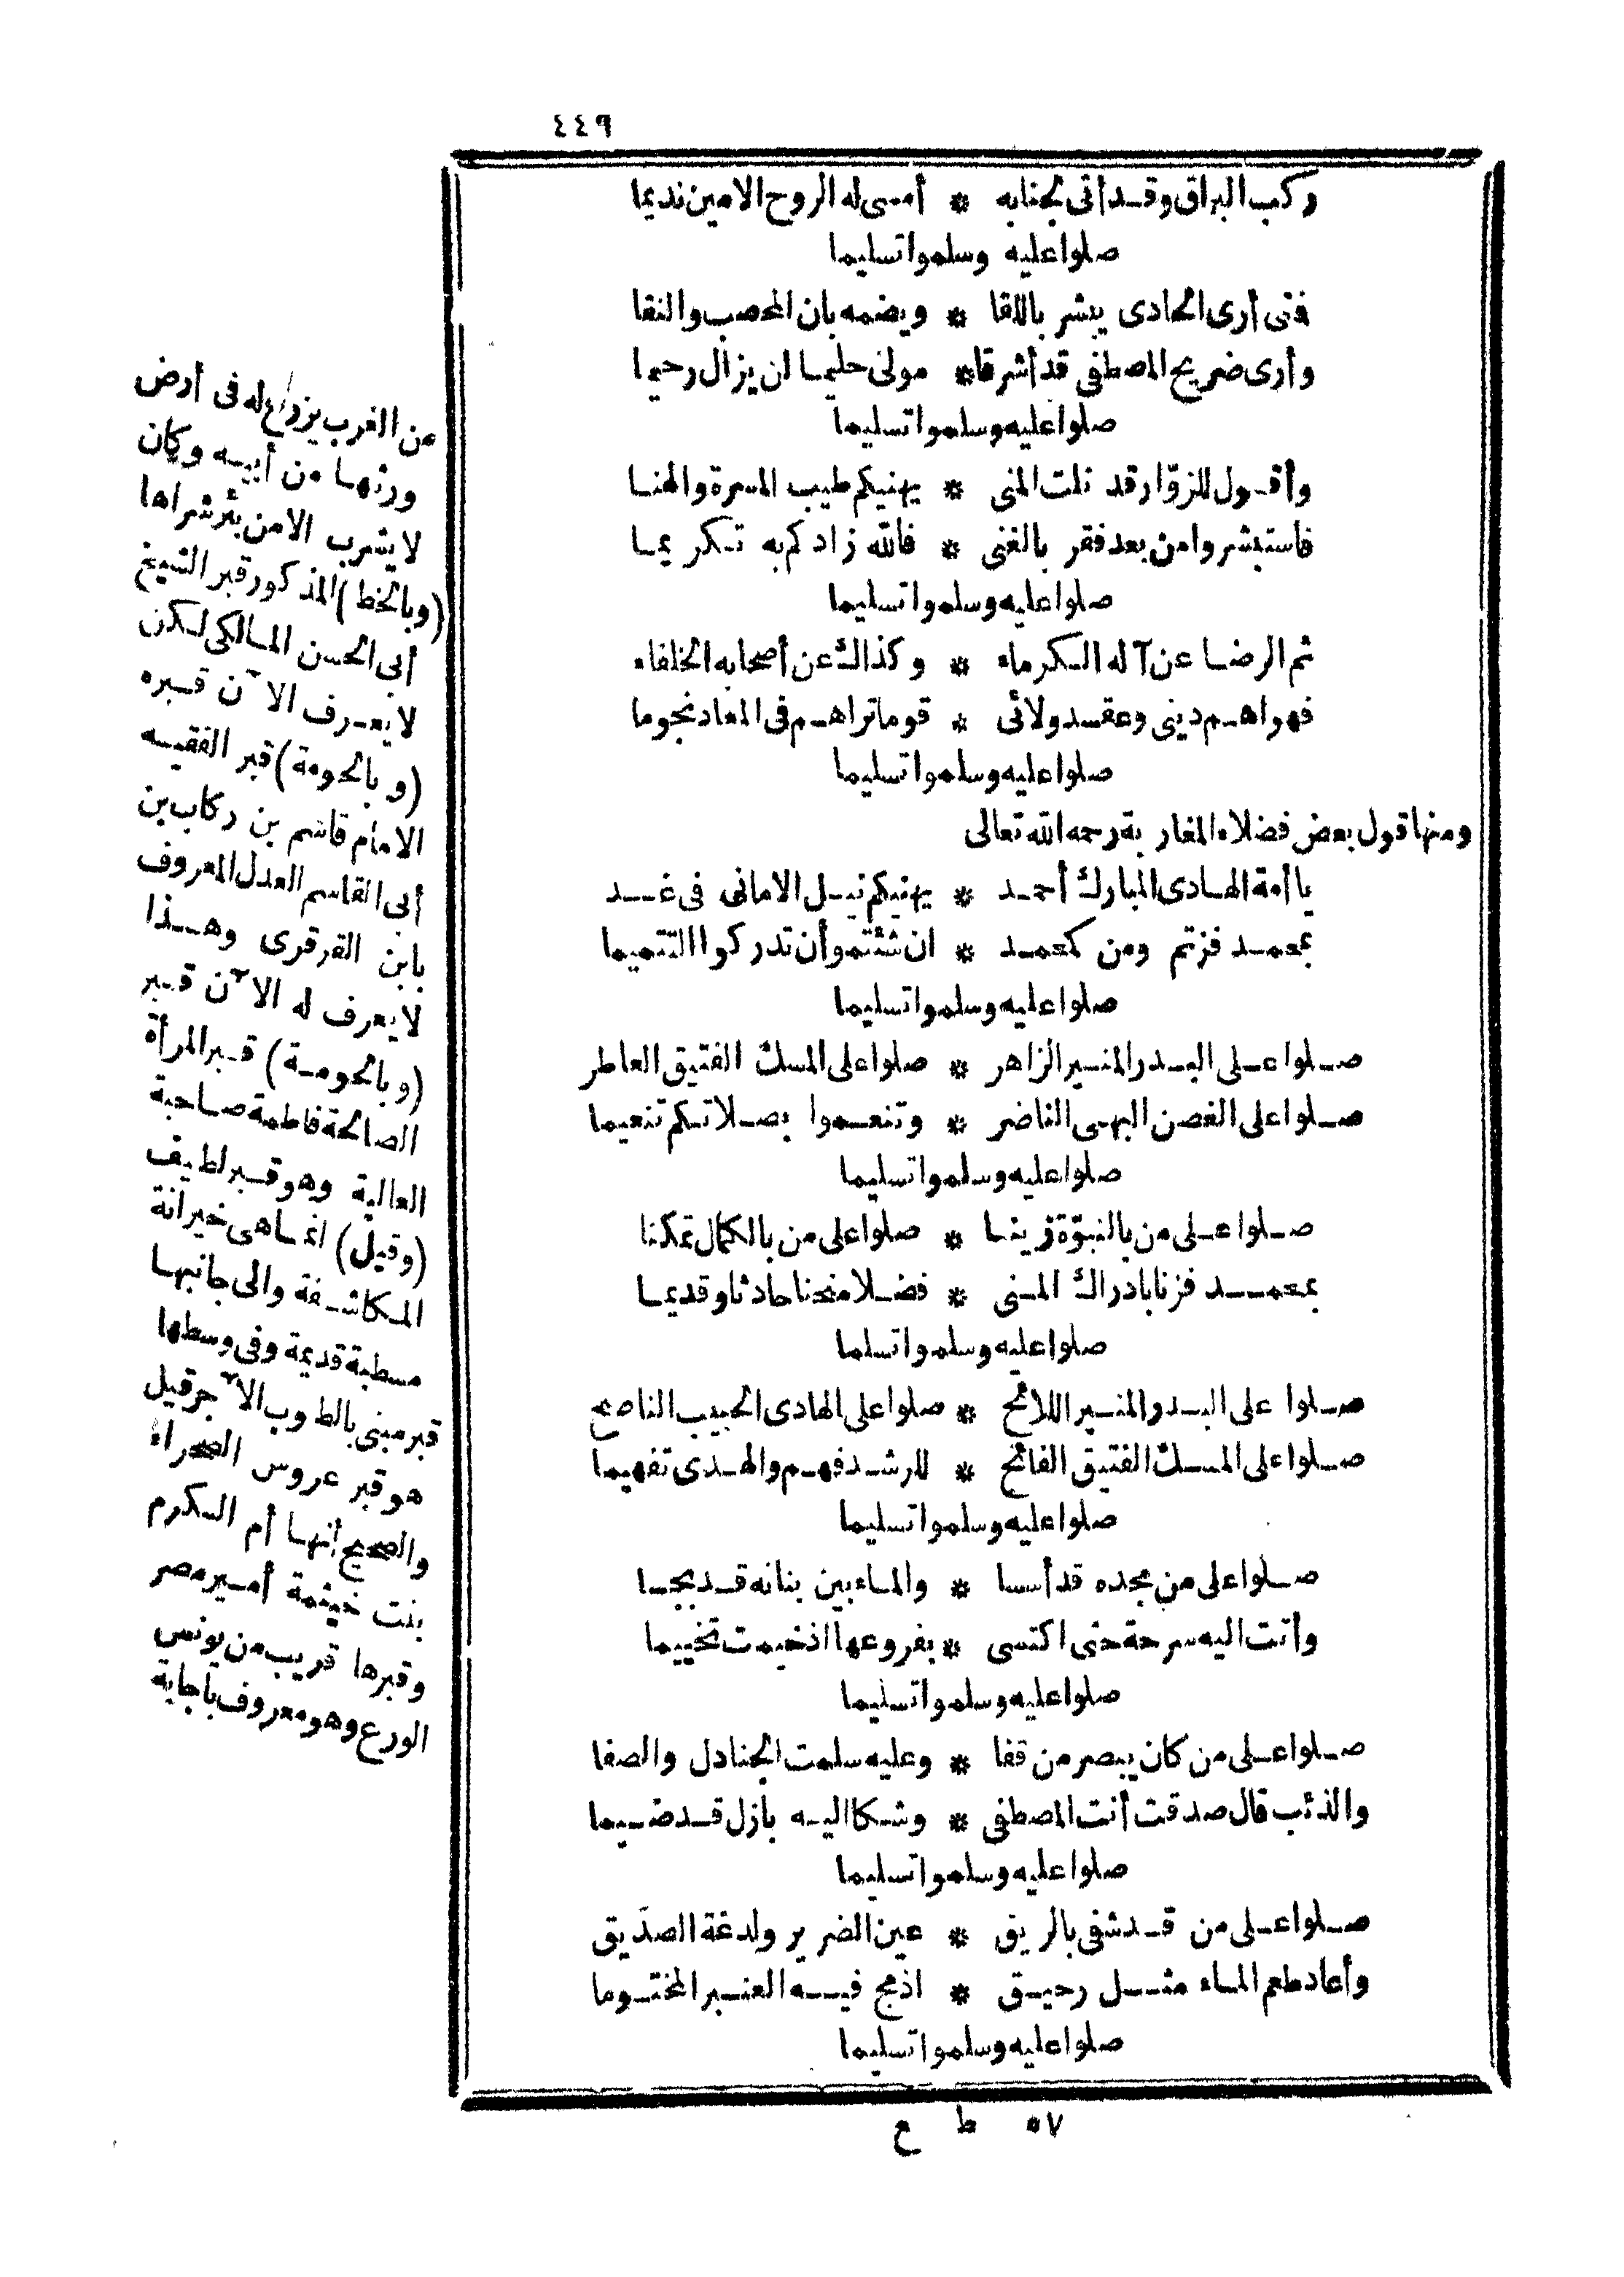 ٤٤٩
ركب البراق وقد أتى لجنابه * أمسى له الروح الامين نديما
صلوا عليه وسلموا تسليما
فتى أرى الحادى يبشر باللقا * ويضمه بان المحصب والنقا
وأرى ضريح المصطفى قد أشرقا * مولى حليما لن يزال رحيما
صلوا عليه وسلموا تسليما
وأقول للزوّار قد نلت المنى * يهنيكم طيب المسرة والهنا
فاستبشروا من بعد فقر بالغنى * فالله زادكم به تكريما
صلوا عليه وسلموا تسليما
ثم الرضا عن آله الكرماء * وكذاك عن أصحابه الخلفاء
فهواهم دينى وعقد ولائى * قوما تراهم فى المعاد نجوما
صلوا عليه وسلموا تسليما
ومنها قول بعض فضلاء المغاربة رحمه الله تعالى
يا أمة الهادى المبارك أحمد * يهنيكم نيل الامانى فى غد
بمحمد فزتم ومن كمحمد * ان شئتمو أن تدركوا التتميما
صلوا عليه وسلموا تسليما
صلوا على البدر المنير الزاهر * صلوا على المسك الفتيق العاطر
صلوا على الغصن البهى الناضر * وتنعموا بصلاتكم تنعيما
صلوا عليه وسلموا تسليما
صلوا على من بالنبوّة زينا * صلوا على من بالكمال تمكنا
بمحمد فزنا بادراك المنى * فضلا منحنا حادثا وقديما
صلوا عليه وسلموا تسلما
صلوا على البدر المنير اللائح * صلوا على الهادى الحبيب الناصح
صلوا على المسك الفتيق الفائح * للرشد فهم والهدى تفهيما
صلوا عليه وسلموا تسليما
صلوا على من مجده قد أسسا * والماء بين بنانه قد بجسا
وأتت اليه سرحة حتى اكتسى * بفروعها اذ خيمت تخييما
صلوا عليه وسلموا تسليما
صلوا على من كان يبصر من قفا * وعليه سلمت الجنادل والصفا
والذئب قال صدقت أنت المصطفى * وشكا اليه بازل قد ضيما
صلوا عليه وسلموا تسليما
صلوا على من قد شفى بالريق * عين الضرير ولدغة الصدّيق
وأعاد طعم الماء مثل رحيق * اذ مج فيه العنبر المختوما
صلوا عليه وسلموا تسليما
٥٧ ط ع
من الغرب يزرع له فى أرض
ورثها من أبيه وكان
لا يشرب الامن بئر شراها
(وبالخط) المذكور قبر الشيخ
أبى الحسن المالكى لكن
لا يعرف الآن قبره
(وبالحومة) قبر الفقيه
الامام قاسم بن ركاب بن
أبى القاسم العدل المعروف
بابن القرقرى وهذا
لا يعرف له الآن قبر
(وبالحومة) قبر المرأة
الصالحة فاطمة صاحبة
العالية وهو قبر لطيف
(وقيل) انما هى خيرانة
المكاشفة والى جانبها
مسطبة قديمة وفى وسطها
قبر مبنى بالطوب الآجر قيل
هو قبر عروس الصحراء
والصحيح انها أم الكرم
بنت خيثمة أمير مصر
وقبرها قريب من يونس
الورع وهو معروف باجابة